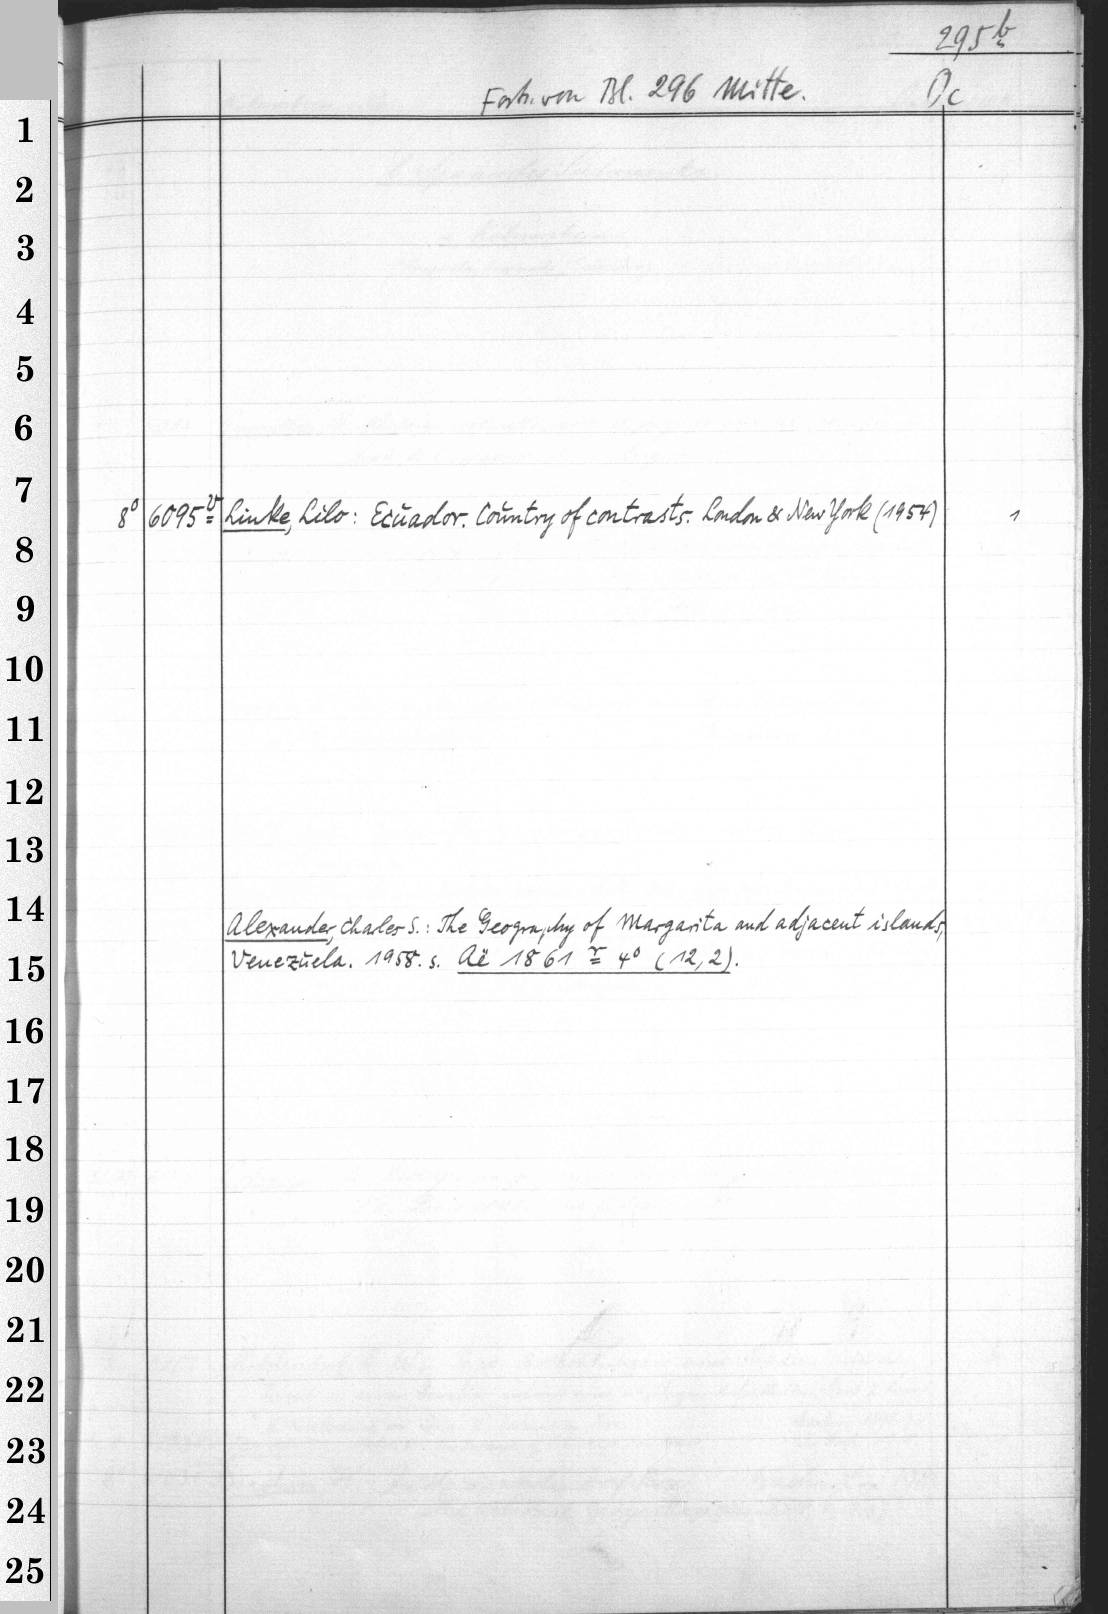 295b
Forts. von Bl. 296 Mitte.
Oc
1
2
3
4
5
6
7
8° 6095v Linke, Lilo: Ecuador. Country of contrasts. London & New York (1954) 1
8
9
10
11
12
13
14
Alexander, Charles S.: The Geography of Margarita and adjacent islands,
Venezuela. 1958. s. Aë 1861 r 4° (12,2).
15
16
17
18
19
20
21
22
23
24
25